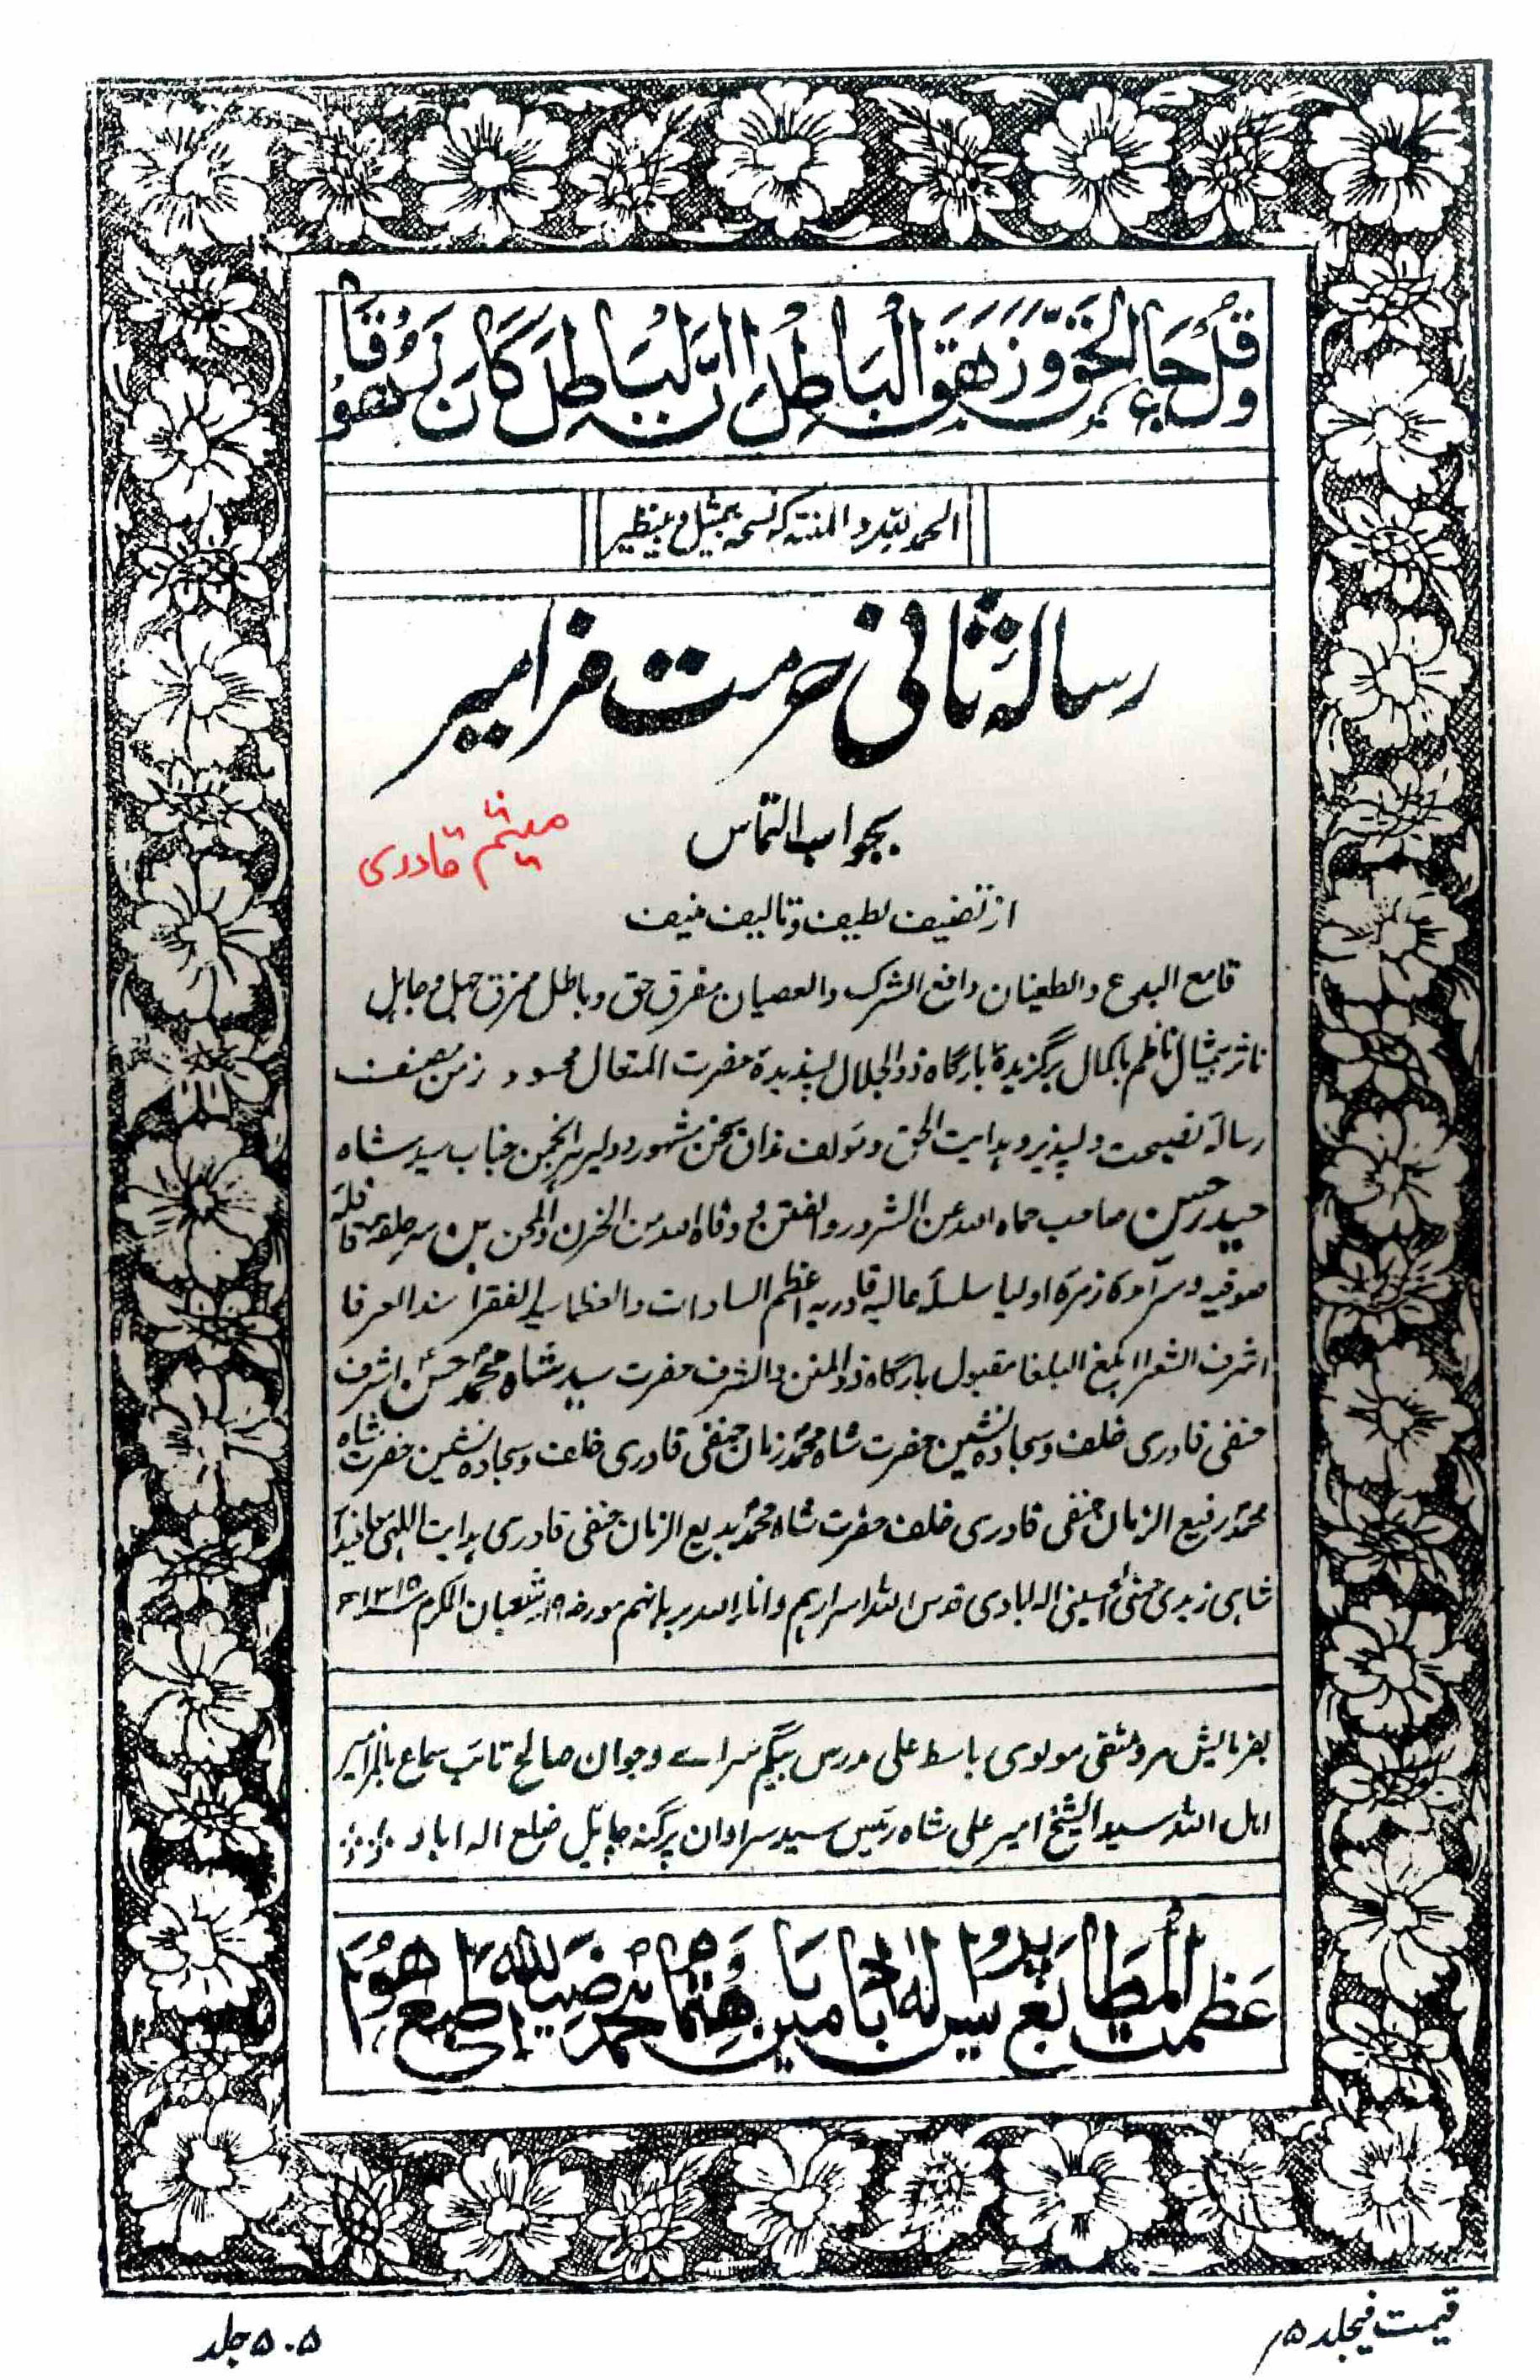 وَقُلْ جَاءَ الْحَقُّ وَزَهَقَ الْبَاطِلُ اِنَّ الْبَاطِلَ كَانَ زَهُوقًا
الحمد للہ و المنتہ کہ نسخہ بیمثیل و بینظیر
رسالۂ ثانی حرمت مزامیر
بجواب التماس
میثم قادری
از تصنیف لطیف و تالیف منیف
قامع البدع والطغیان دافع الشرک والعصیان مفرق حق و باطل ممزق جہل و جاہل
ناثر بیمثال ناظم باکمال برگزیدۂ بارگاہ ذوالجلال پسندیدۂ حضرت المتعال محسود زمن مصنف
رسالۂ نصیحت دلپذیر و ہدایت الحق و مؤلف مذاق سخن مشہور و دلیر ہر انجمن جناب سید شاہ
حیدر حسن صاحب حماہ اللہ عن الشرور والفتن و وقاہ اللہ من الحزن والمحن بن سر حلقۂ قافلۂ
صوفیہ و سرآمد زمرۂ اولیا سلسلۂ عالیہ قادریہ اعظم السادات والعظما الفقرا سند العرفا
اشرف الشعرا ابلغ البلغا مقبول بارگاہ ذوالمنن والشرف حضرت سید شاہ محمد حسن اشرف
حنفی قادری خلف و سجادہ نشین حضرت شاہ محمد زمان حنفی قادری خلف و سجادہ نشین حضرت شاہ
محمد رفیع الزمان حنفی قادری خلف حضرت شاہ محمد بدیع الزمان حنفی قادری ہدایت اللہی
شاہی زیدی حسنی الحسینی الہ آبادی قدس اللہ اسرارہم و انار اللہ برہانہم مورخہ ۱۹ شعبان المکرم ۱۳۱۵ھ
بفرمایش مرد متقی مولوی باسط علی مدرس بیگم سرائے و جوان صالح تائب سماع بالمزامیر
اہل اللہ سید الشیخ امیر علی شاہ رئیس سید سراواں پرگنہ چایل ضلع الہ اباد
عظمت المطابع پریس الہ اباد میں باہتمام محمد رضی اللہ طبع ہوا
قیمت فیجلد ۵ر
۵۰۵ جلد